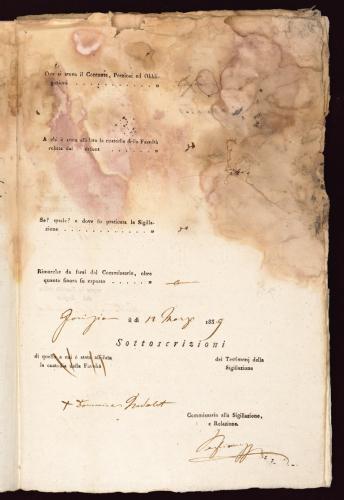 Ove si trova il Contante, Preziosi ed Obbli-
gazioni . . . . . . . . . . . . „
A chi è stata affidata la custodia della Facoltà
relitta dal defont . . . . . . . . „
Se? quale? e dove fu praticata la Sigilla-
zione . . . . . . . . . . . . . „
Rimarche da farsi dal Commissario, oltre
quanto finora fu esposto . . . . . . „
Gorizia à dì 12 Marzo 1839
Sottoscrizioni
di quello a cui è stata affidata
la custodia della Facoltà
dei Testimonj della
Sigillazione
Commissario alla Sigillazione,
e Relazione.